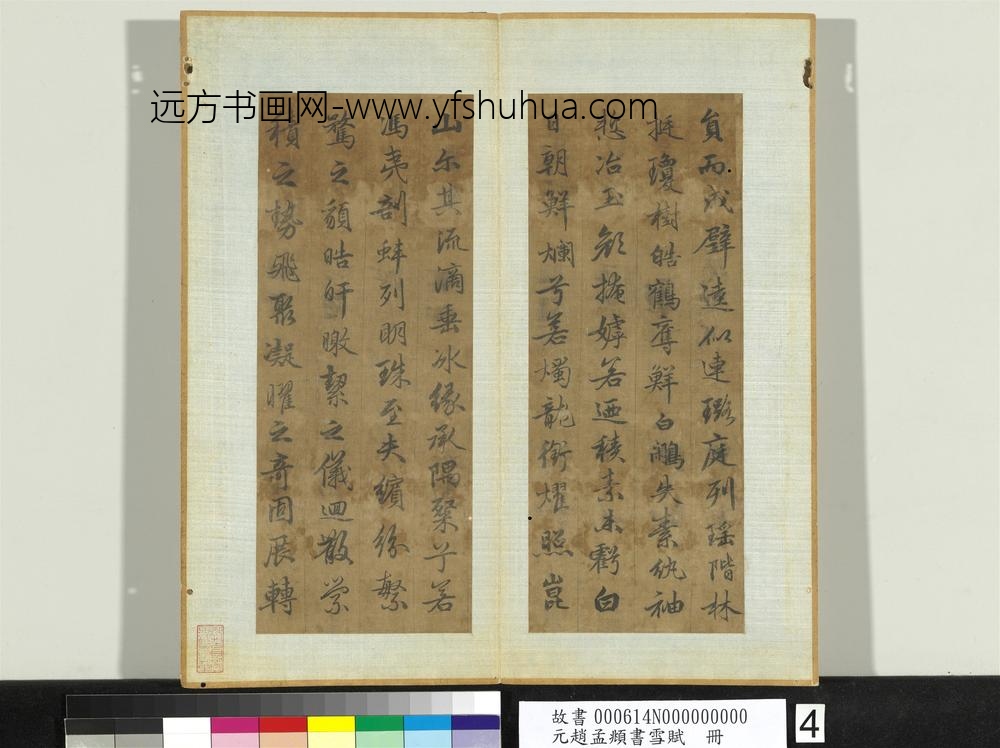 远方书画网-www.yfshuhua.com
員而成璧逵似連璐庭列瑶階林
挺瓊樹皓鶴奪鮮白鷴失素紈袖
慙冶玉顏掩姱若迺積素未虧白
日朝鮮爛兮若燭龍銜燿照崐
山尓其流滴垂冰緣承隅粲兮若
馮夷剖蚌列明珠至夫繽紛繁
騖之貌皓旰曒絜之儀迴散縈
積之勢飛聚凝曜之奇固展轉
故書 000614N000000000
元趙孟頫書雪賦 冊
4